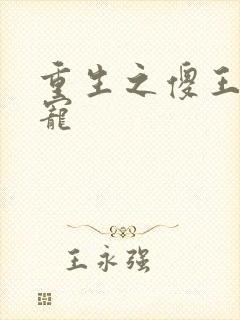 重生之傻王
寵
王永强